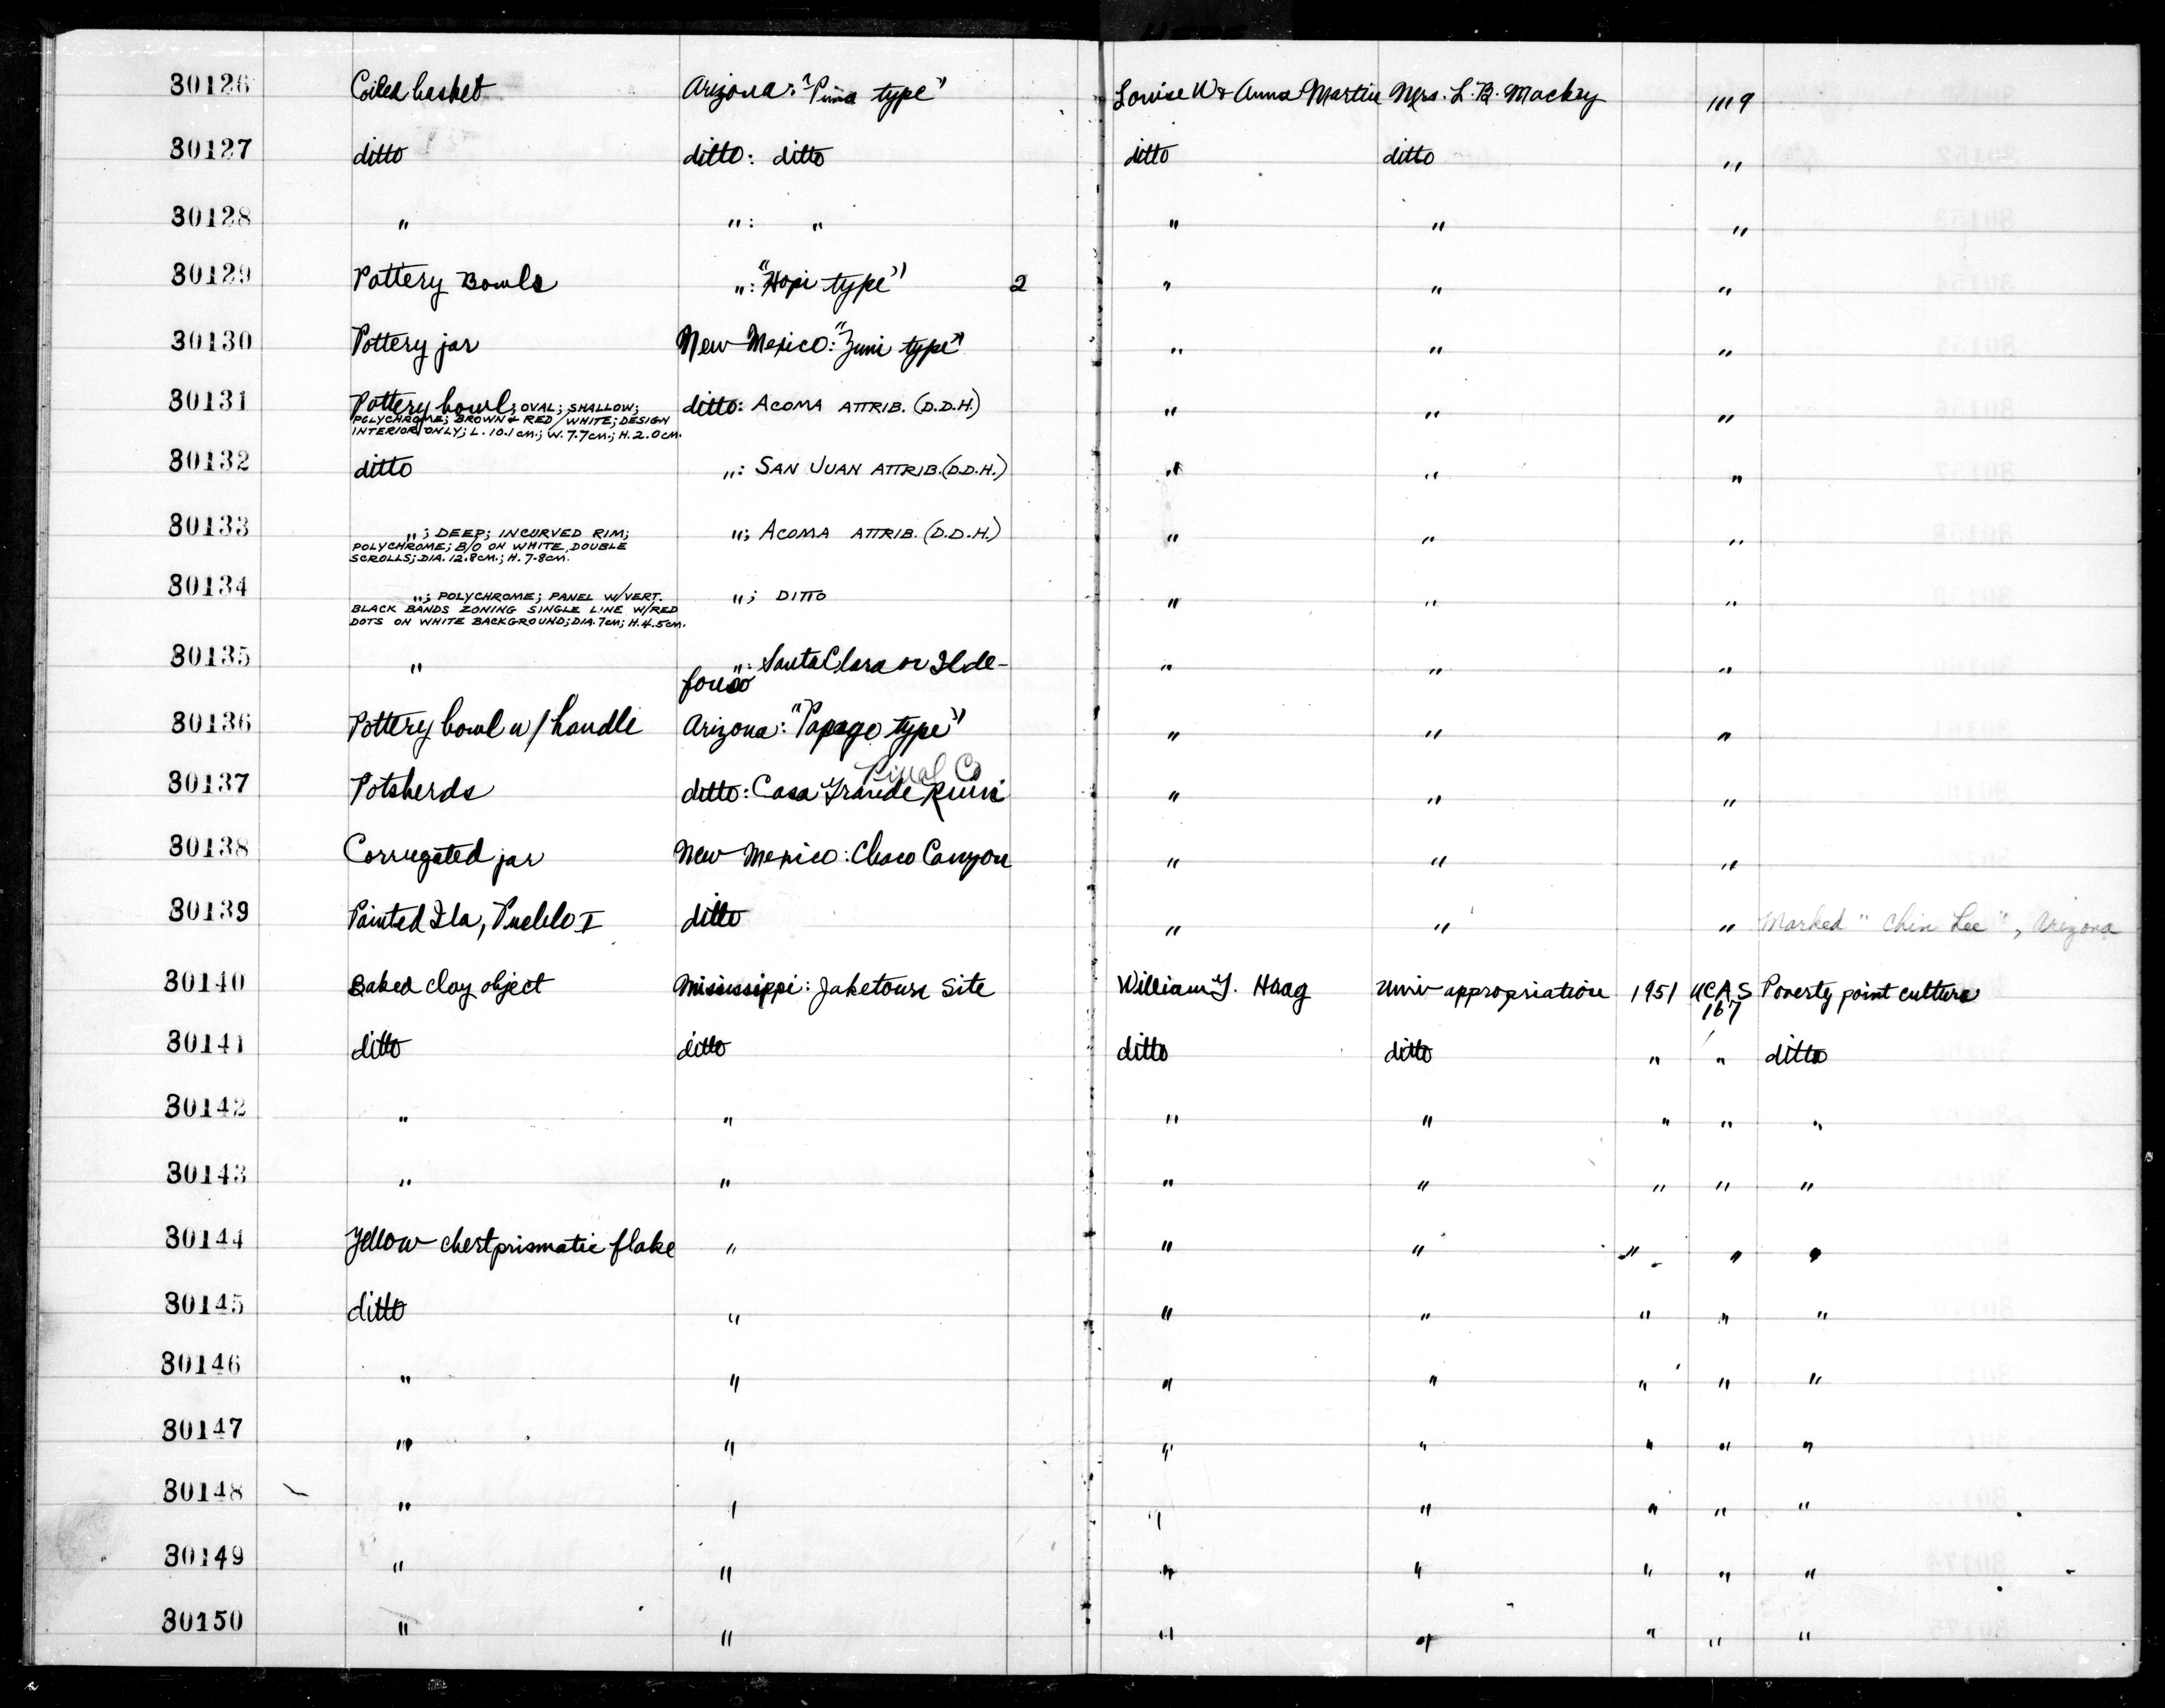 30126 Coiled basket Arizona: "Pima type" Louise W & Anna Martin Mrs. L. B. Mackey 1119
30127 ditto ditto: ditto ditto ditto "
30128 " ": " " " "
30129 Pottery Bowls ": "Hopi type" 2 " " "
30130 Pottery jar New Mexico: "Zuni type" " " "
30131 Pottery bowl; OVAL; SHALLOW; ditto: ACOMA ATTRIB. (D.D.H.) " " "
POLYCHROME; BROWN & RED/WHITE; DESIGN
INTERIOR ONLY; L. 10.1 cm.; W. 7.7cm.; H. 2.0cm.
30132 ditto ": SAN JUAN ATTRIB. (D.D.H.) " " "
30133 "; DEEP; INCURVED RIM; "; ACOMA ATTRIB. (D.D.H.) " " "
POLYCHROME; B/O ON WHITE DOUBLE
SCROLLS; DIA. 12.8cm.; H. 7.8cm.
30134 "; POLYCHROME; PANEL W/VERT. "; DITTO " " "
BLACK BANDS ZONING SINGLE LINE W/RED
DOTS ON WHITE BACKGROUND; DIA. 7cm; H. 4.5cm.
30135 " ": Santa Clara or Ilde- " " "
fonso
30136 Pottery bowl w/ handle Arizona: "Papago type" " " "
Pinal Co
30137 Potsherds ditto: Casa Grande Ruin " " "
30138 Corrugated jar New Mexico: Chaco Canyon " " "
30139 Painted Ila, Pueblo I ditto " " " Marked "Chin Lee", Arizona
30140 Baked clay object Mississippi: Jaketown Site William G. Haag Univ appropriation 1951 UCAS Poverty point culture
167
30141 ditto ditto ditto ditto " " ditto
30142 " " " " " " "
30143 " " " " " " "
30144 Yellow chert prismatic flake " " " " " "
30145 ditto " " " " " "
30146 " " " " " " "
30147 " " " " " " "
30148 " " " " " " "
30149 " " " " " " "
30150 " " " " " " "